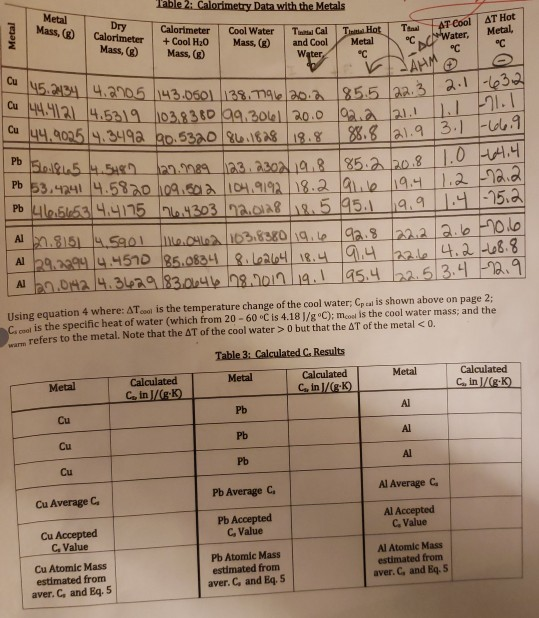 Table 2: Calorimetry Data with the Metals
Metal | Metal Mass, (g) | Dry Calorimeter Mass, (g) | Calorimeter + Cool H₂O Mass, (g) | Cool Water Mass, (g) | T Initial Cal and Cool Water, | T Initial Hot Metal °C | T final °C | ΔT Cool Water, °C | ΔT Hot Metal, °C
Cu 45.2434 4.2705 143.0501 138.7796 20.2 85.5 22.3 2.1 -63.2
Cu 44.4121 4.5319 103.8380 99.3061 20.0 92.2 21.1 1.1 -71.1
Cu 44.9025 4.3492 90.5320 86.1828 18.8 88.8 21.9 3.1 -66.9
Pb 4.5487 127.7789 123.2302 19.8 85.2 20.8 1.0 -64.4
Pb 53.4241 4.5820 109.5012 104.9192 18.2 91.6 19.4 1.2 -72.2
Pb 46.5653 4.4175 76.4303 72.0128 18.5 95.1 19.9 1.4 -75.2
Al 27.8151 4.5901 103.8380 19.6 92.8 22.2 2.6 -70.6
Al 29.2294 4.4570 85.0834 8.6264 18.4 91.4 22.6 4.2 -68.8
Al 27.0142 4.3629 83.0646 78.7017 19.1 95.4 22.5 3.4 -72.9
Using equation 4 where: ΔTcool is the temperature change of the cool water; Cp cal is shown above on page 2;
Cs cool is the specific heat of water (which from 20 - 60 °C is 4.18 J/g °C); mcool is the cool water mass; and the
warm refers to the metal. Note that the ΔT of the cool water > 0 but that the ΔT of the metal < 0.
Table 3: Calculated Cs Results
Metal | Calculated Cs, in J/(g·K) | Metal | Calculated Cs, in J/(g·K) | Metal | Calculated Cs, in J/(g·K)
Cu Pb Al
Cu Pb Al
Cu Pb Al
Cu Average Cs Pb Average Cs Al Average Cs
Cu Accepted Cs Value Pb Accepted Cs Value Al Accepted Cs Value
Cu Atomic Mass estimated from aver. Cs and Eq. 5 Pb Atomic Mass estimated from aver. Cs and Eq. 5 Al Atomic Mass estimated from aver. Cs and Eq. 5